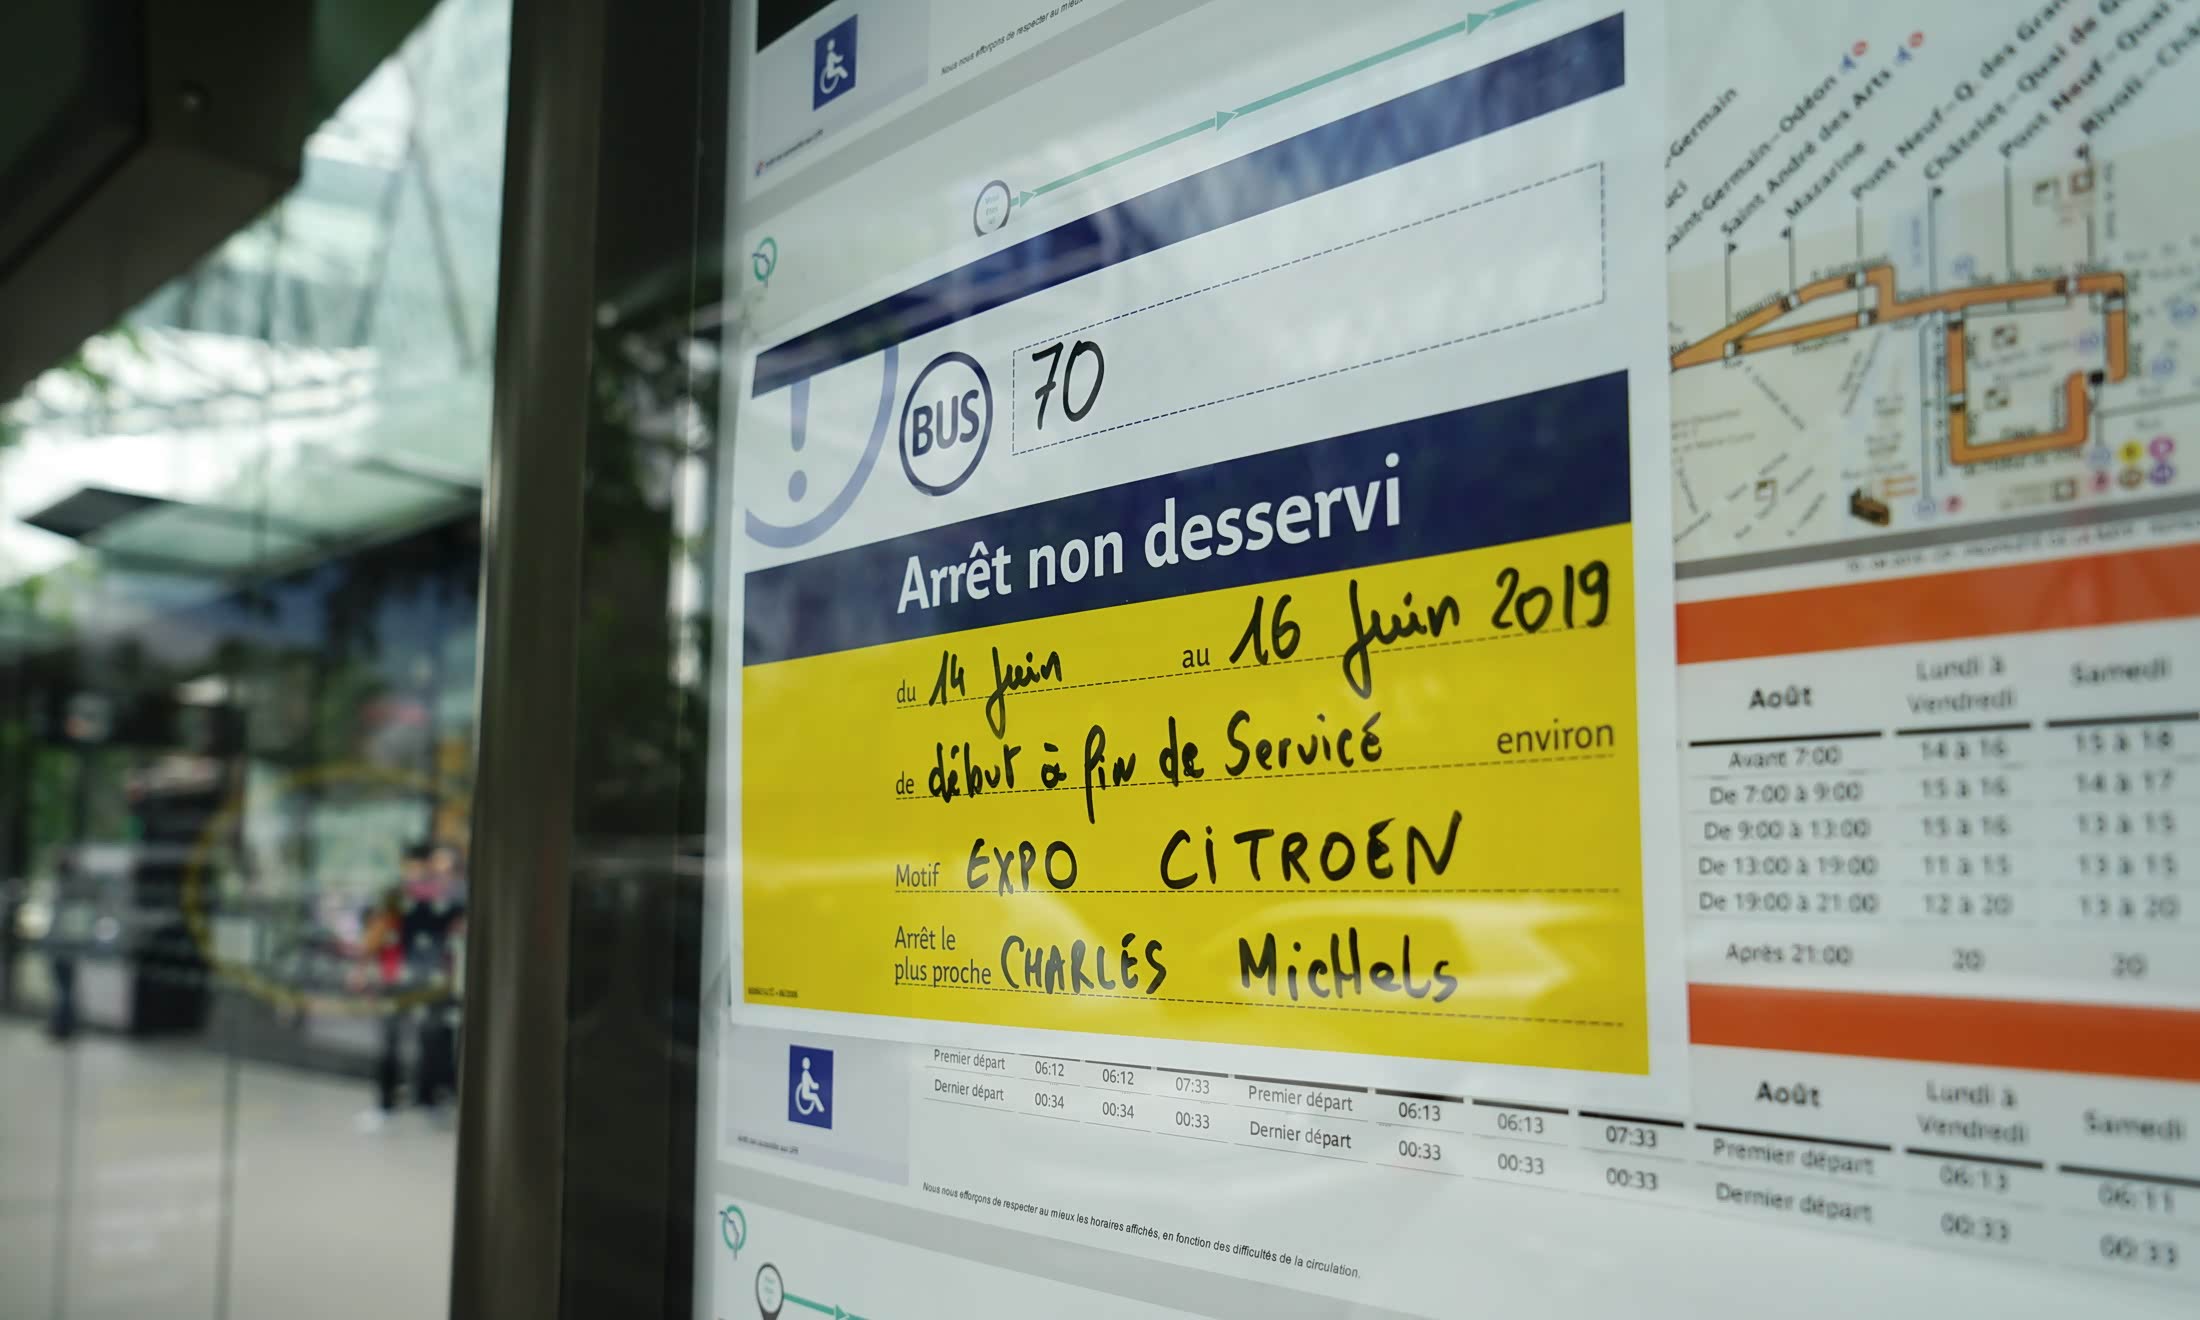 Nous nous efforçons de respecter au mieux
BUS 70
Arrêt non desservi
du 14 Juin au 16 Juin 2019
de début à fin de Service environ
Motif EXPO CiTROEN
Arrêt le
plus proche CHARLES MicHels
Premier départ 06:12 06:12 07:33 Premier départ 06:13 06:13 07:33 Premier départ 06:13 06:11
Dernier départ 00:34 00:34 00:33 Dernier départ 00:33 00:33 00:33 Dernier départ 00:33 00:33
Nous nous efforçons de respecter au mieux les horaires affichés, en fonction des difficultés de la circulation.
-Germain
Saint-Germain – Odéon
Saint André des Arts
Mazarine
Pont Neuf – Q. des Gran
Châtelet – Quai de
Pont Neuf – Quai
Rivoli – Châ
Août Lundi à Vendredi Samedi
Avant 7:00 14 à 16 15 à 18
De 7:00 à 9:00 15 à 16 14 à 17
De 9:00 à 13:00 15 à 16 13 à 15
De 13:00 à 19:00 11 à 15 13 à 15
De 19:00 à 21:00 12 à 20 13 à 20
Après 21:00 20 20
Août Lundi à Vendredi Samedi